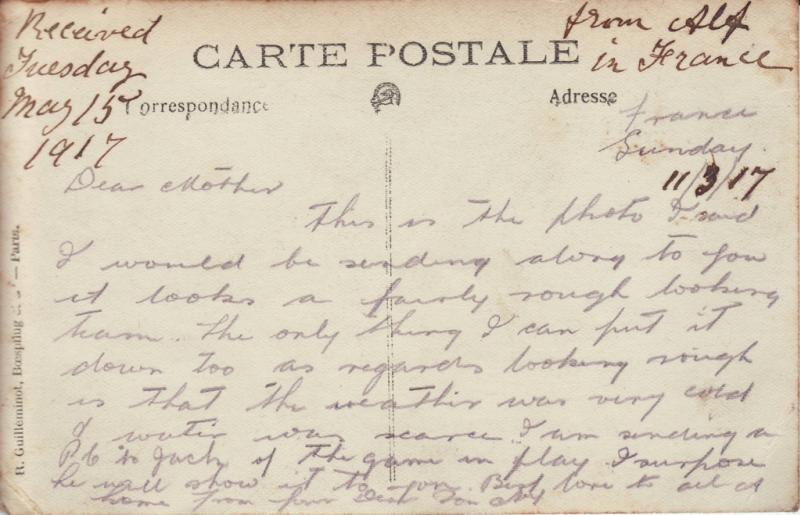 Received
Tuesday
May 15
1917
from Alf
in France
CARTE POSTALE
Correspondance
Adresse
France
Sunday.
11/3/17
Dear Mother
This is the photo I said
I would be sending along to you
it looks a fairly rough looking
team. The only thing I can put it
down too as regards looking rough
is that the weather was very cold
& water was scarce. I am sending a
P.C to Jack of the game in play I surpose
he will show it to you. Best love to all at
home from your Son Alf
R. Guilleminot, Bœspflug — Paris.